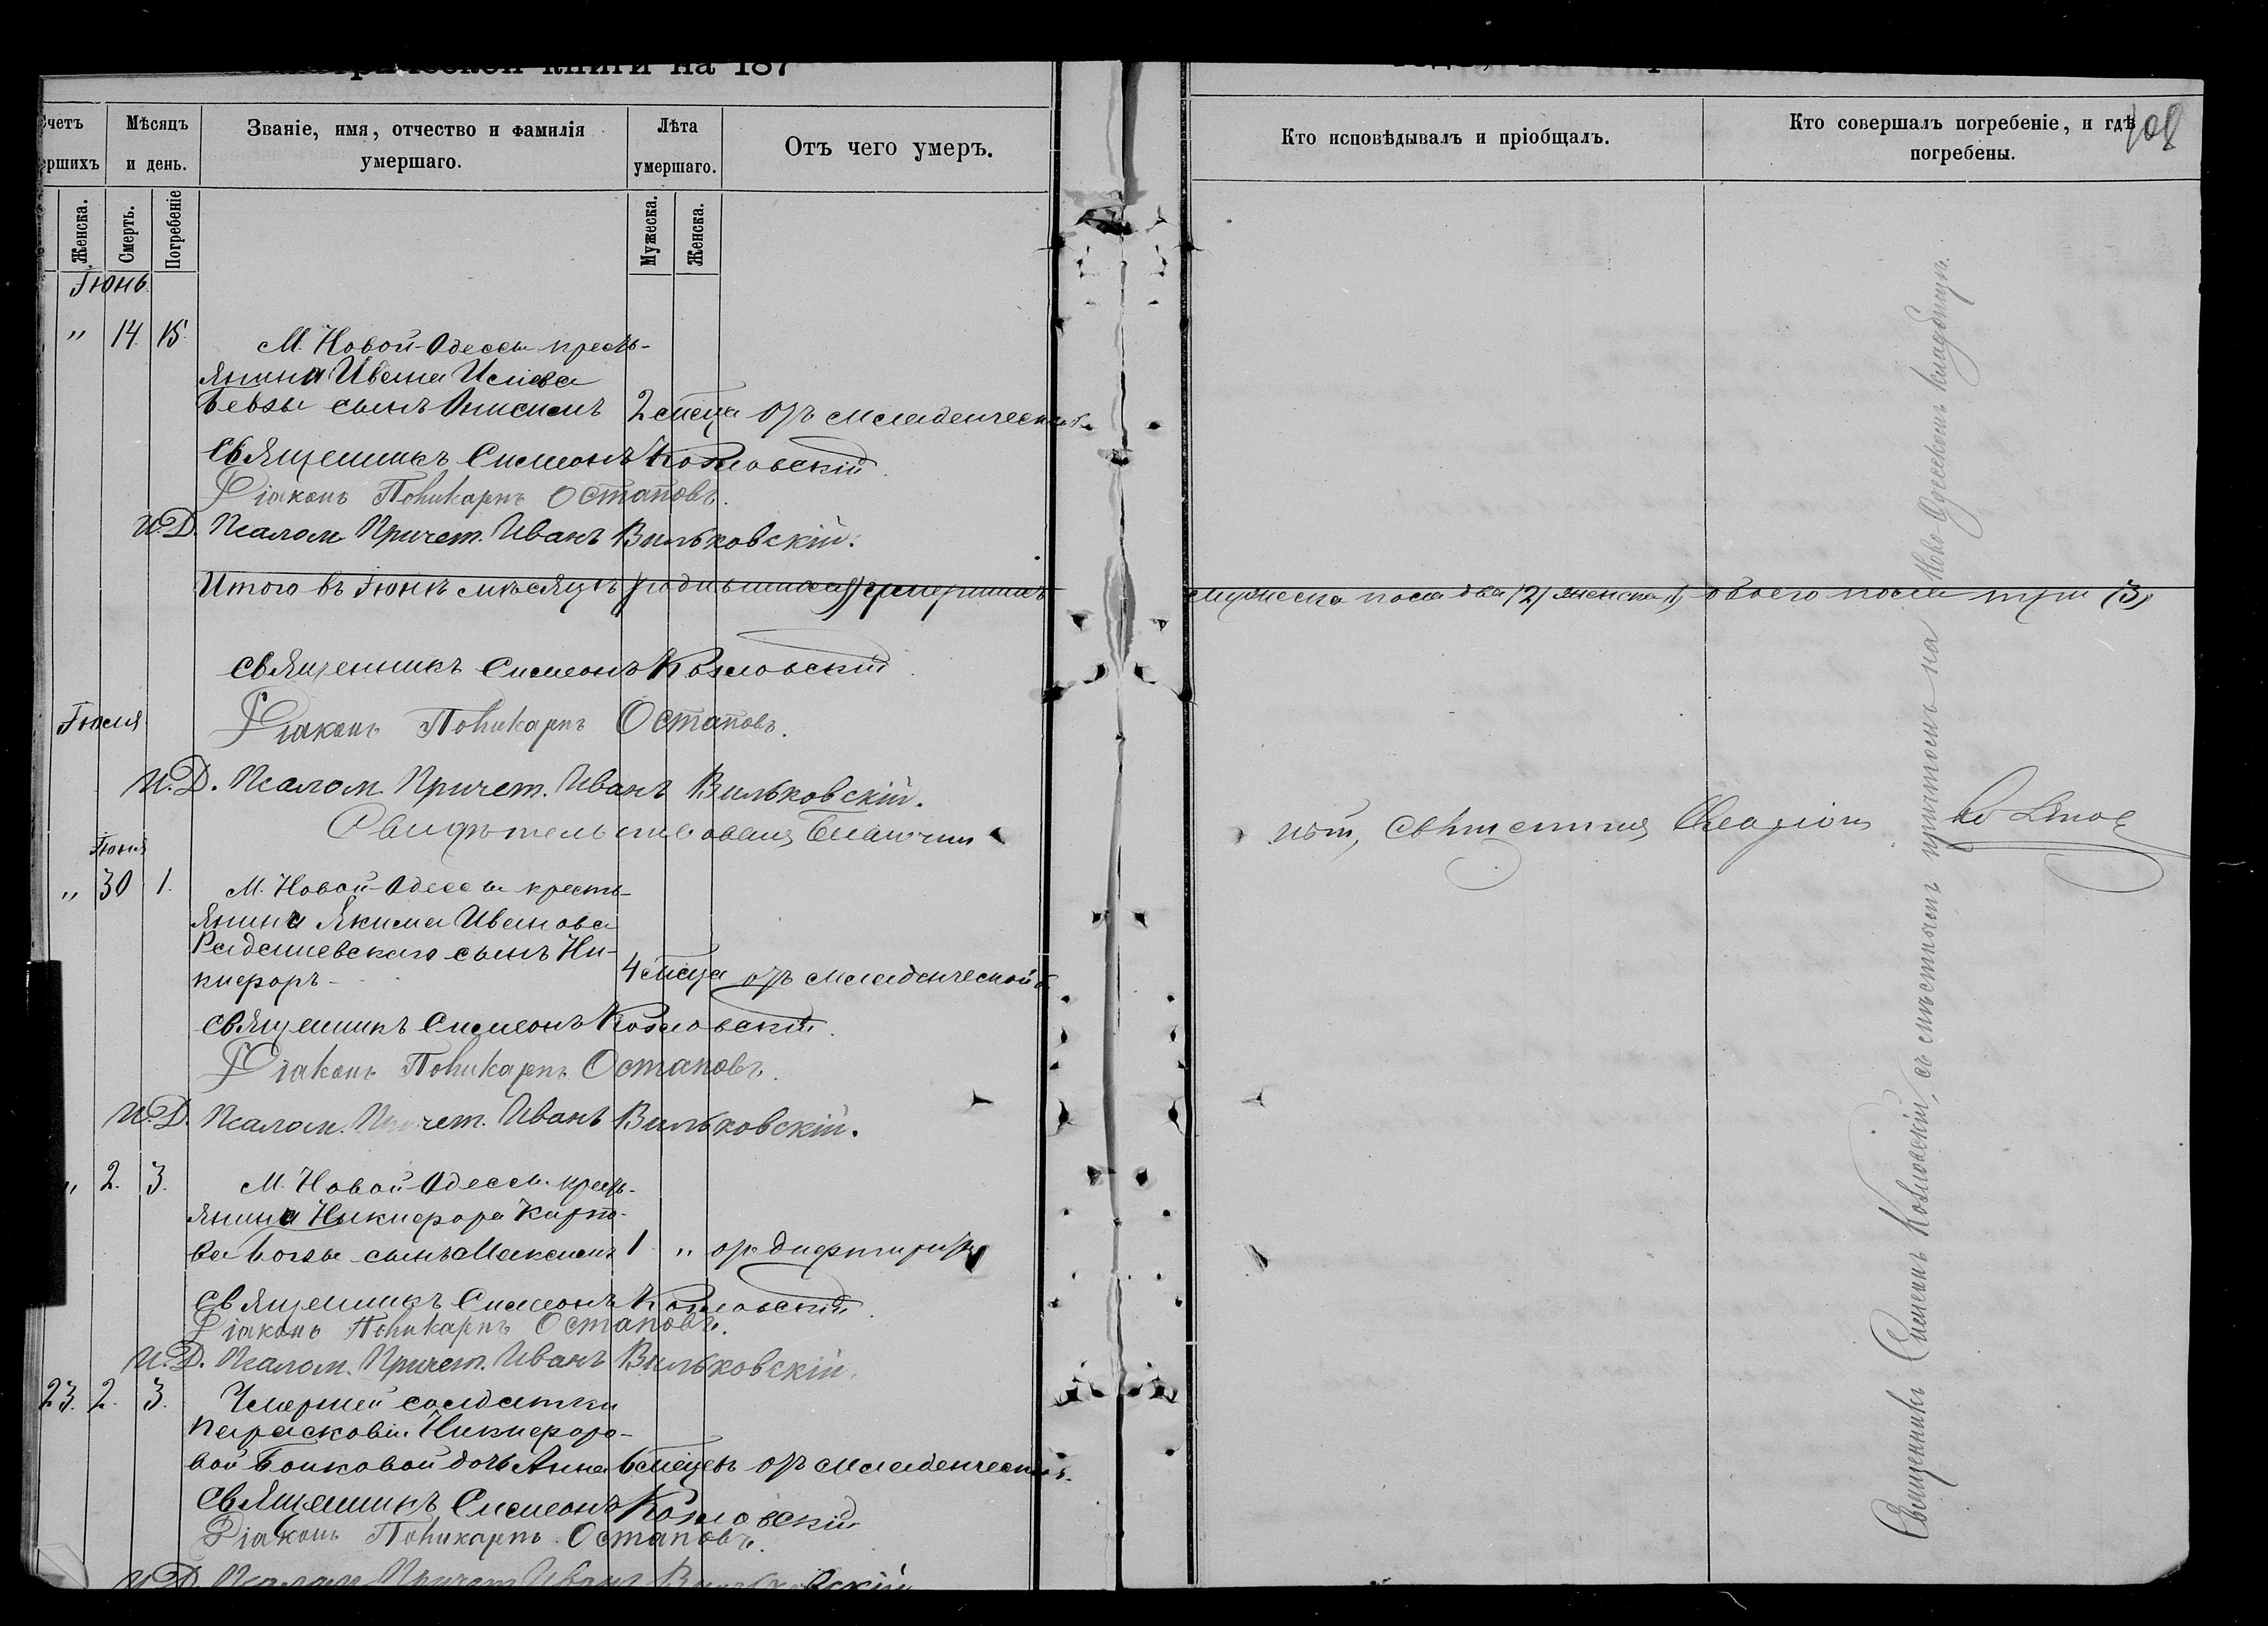 книги на 187
Счетъ
ершихъ
Мѣсяцъ
и день.
Званіе, имя, отчество и фамилія
умершаго.
Лѣта
умершаго.
Отъ чего умеръ.
Кто исповѣдывалъ и пріобщалъ.
Кто совершалъ погребеніе, и гдѣ
погребены.
108
Женска.
Смерть.
Погребеніе
Мужеска.
Женска.
Іюнь.
" 14. 15. М. Новой-Одессы кресть-
янина Ивана Исаева
Бевзы сынъ Онисимъ 2 мѣсяца отъ младенческой
Священникъ Симеонъ Козловскій.
Діаконъ Поликарпъ Остаповъ.
И.Д. Псалом. Причет. Иванъ Вильковскій.
Итого въ Іюнѣ мѣсяцѣ (родившихся) умершихъ мужеска пола два (2) женска 1, обоего пола три (3)
Священникъ Симеонъ Козловскій.
Іюля
Діаконъ Поликарпъ Остаповъ.
И.Д. Псалом. Причет. Иванъ Вильковскій.
Свидѣтельствовалъ Благочин
ный, Священникъ
Іюня
" 30 1. М. Новой-Одессы кресть-
янина Якима Иванова
Радашевскаго сынъ Ни-
кифоръ 4 мѣсяца отъ младенческой б.
Священникъ Симеонъ Козловскій.
Діаконъ Поликарпъ Остаповъ.
И.Д. Псалом. Причет. Иванъ Вильковскій.
" 2. 3. М. Новой-Одессы кресть-
янина Никифора
сынъ Максимъ 1 " отъ дифтирита
Священникъ Симеонъ Козловскій.
Діаконъ Поликарпъ Остаповъ.
И.Д. Псалом. Причет. Иванъ Вильковскій.
23. 2. 3. Умершей солдатки
Парасковіи Никифоро-
вой Бойковой дочь Анна 6 мѣсяцевъ отъ младенческой
Священникъ Симеонъ Козловскій
Діаконъ Поликарпъ Остаповъ.
И.Д. Псалом. Причет. Иванъ Вильковскій
Священникъ Симеонъ Козловскій, съ мѣстнымъ причтомъ на Ново-Одесскомъ кладбищѣ.